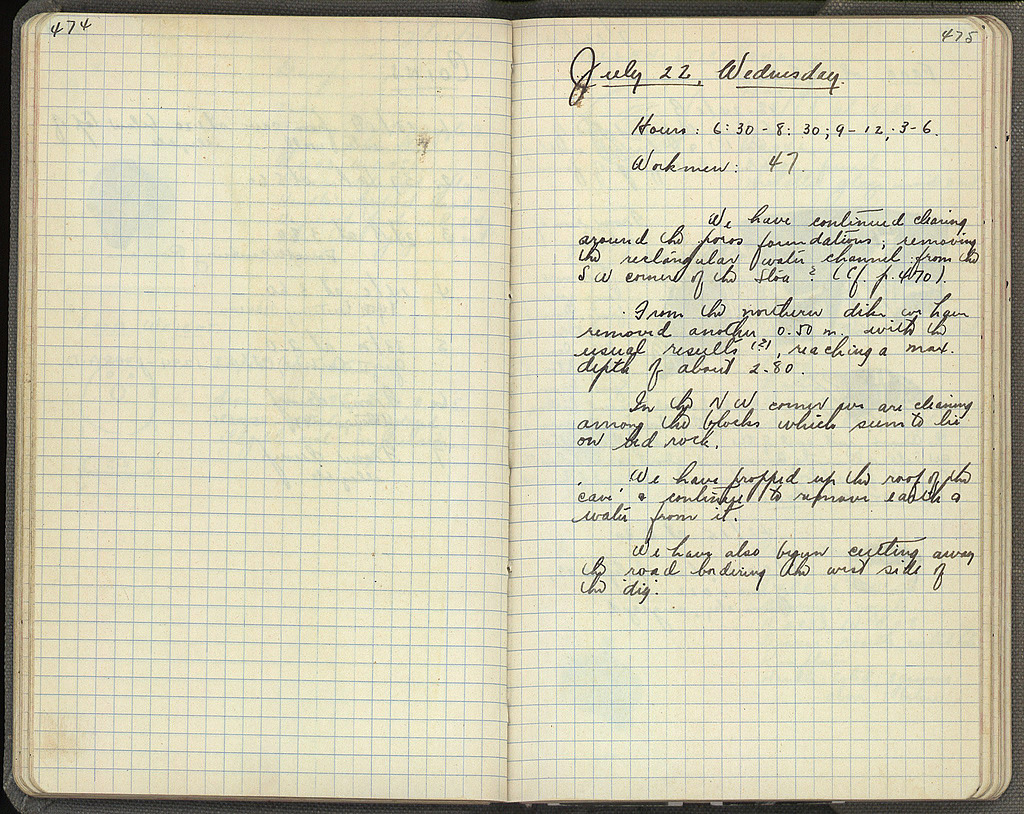 474
475
July 22, Wednesday.
Hours: 6:30-8:30; 9-12; 3-6.
Workmen: 47.
We have continued clearing
around the poros foundations, removing
the rectangular water channel from the
SW corner of the Stoa? (Cf. p. 470).
From the northern dike we have
removed another 0.50 m. with the
usual results (?), reaching a max.
depth of about 2.80.
In the NW corner we are cleaning
among the blocks which seem to lie
on bed rock.
We have propped up the roof of the
'cave' & continue to remove earth &
water from it.
We have also begun cutting away
the road bordering the west side of
the dig.